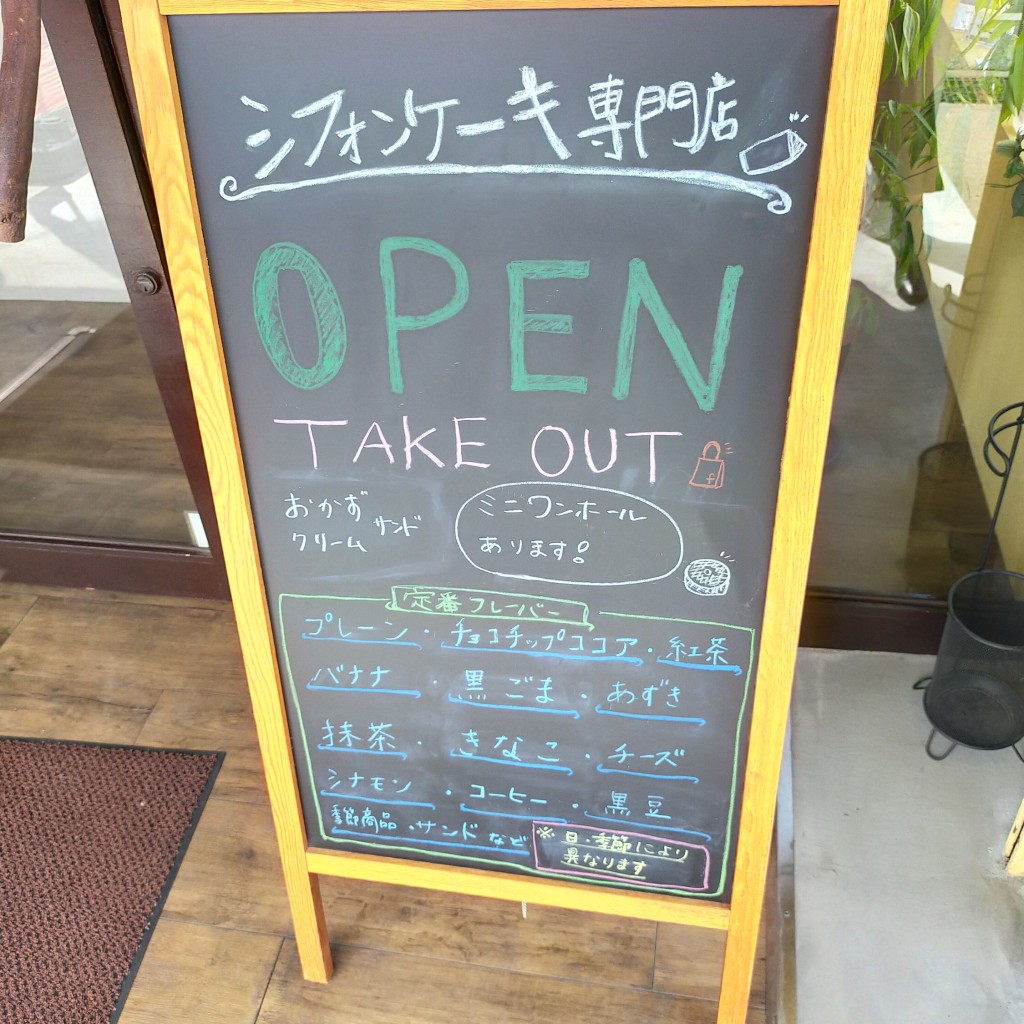 シフォンケーキ専門店
OPEN
TAKE OUT
おかず
クリーム
サンド
ミニワンホール
あります!
定番フレーバー
プレーン・チョコチップココア・紅茶
バナナ・黒ごま・あずき
抹茶・きなこ・チーズ
シナモン・コーヒー・黒豆
季節商品・サンドなど
※日・季節により
異なります